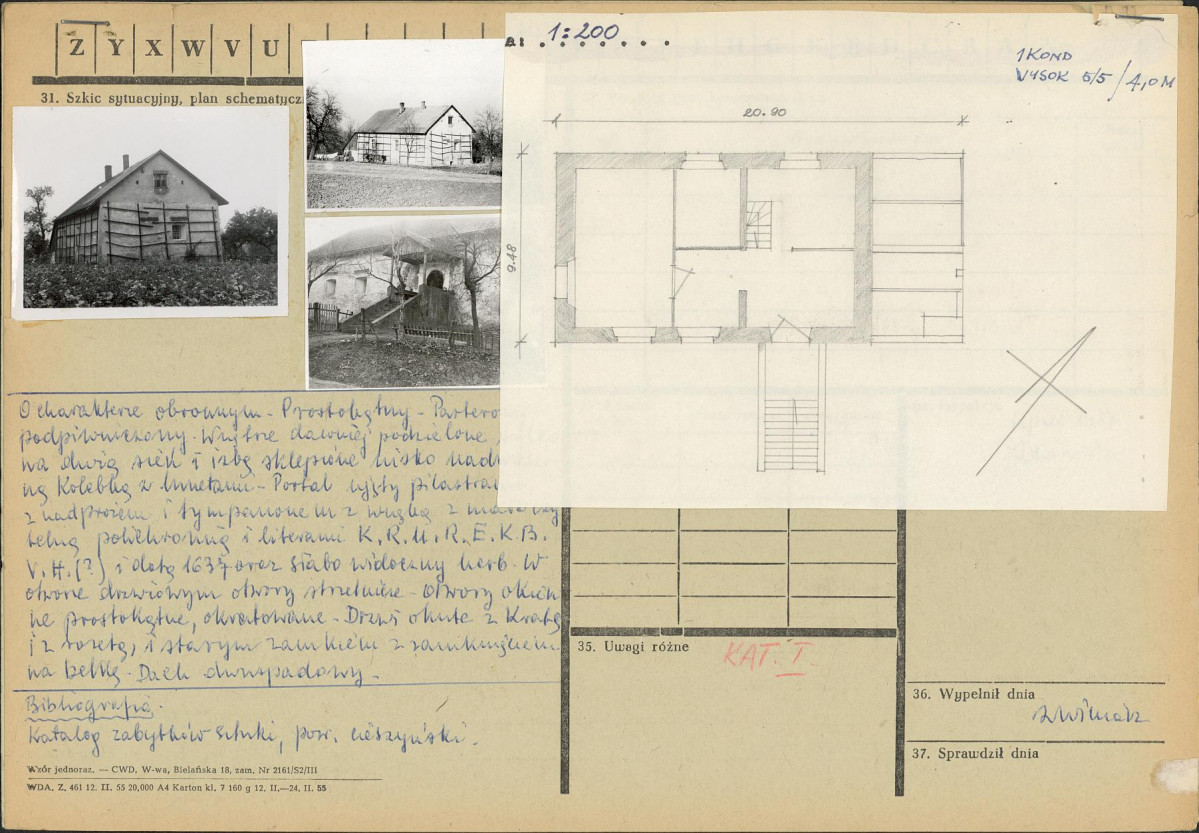 Z Y X W V U
1:200
1 KOND
WYSOK 5/5 / 4,0 M
31. Szkic sytuacyjny, plan schematyczn
20.90
9.48
O charakterze obronnym - Prostokątny - Partero
podpiwniczony. Wnętrze dawniej podzielone
na dwie sień i izbę sklepione nisko
ną Kolebką z lunetami - Portal ujęty pilastra
z nadprożem i tympanonem z wnęką z
telną polichromią i literami K. R. U. R. E. K. B.
V. H. (?) i datą 1637 oraz słabo widoczny herb. W
otworze drzwiowym otwory strzelnicze - Otwory okien
ne prostokątne, okratowane - Drzwi okute z Kratą
i z rozetą, i starym zamkiem z zamknięciem
na belkę. Dach dwuspadowy -
Bibliografia.
Katalog zabytków sztuki, pow. cieszyński.
Wzór jednoraz. — CWD, W-wa, Bielańska 18, zam. Nr 2161/S2/III
WDA. Z. 461 12. II. 55 20,000 A4 Karton kl. 7 160 g 12. II.—24. II. 55
35. Uwagi różne
KAT. I
36. Wypełnił dnia
37. Sprawdził dnia